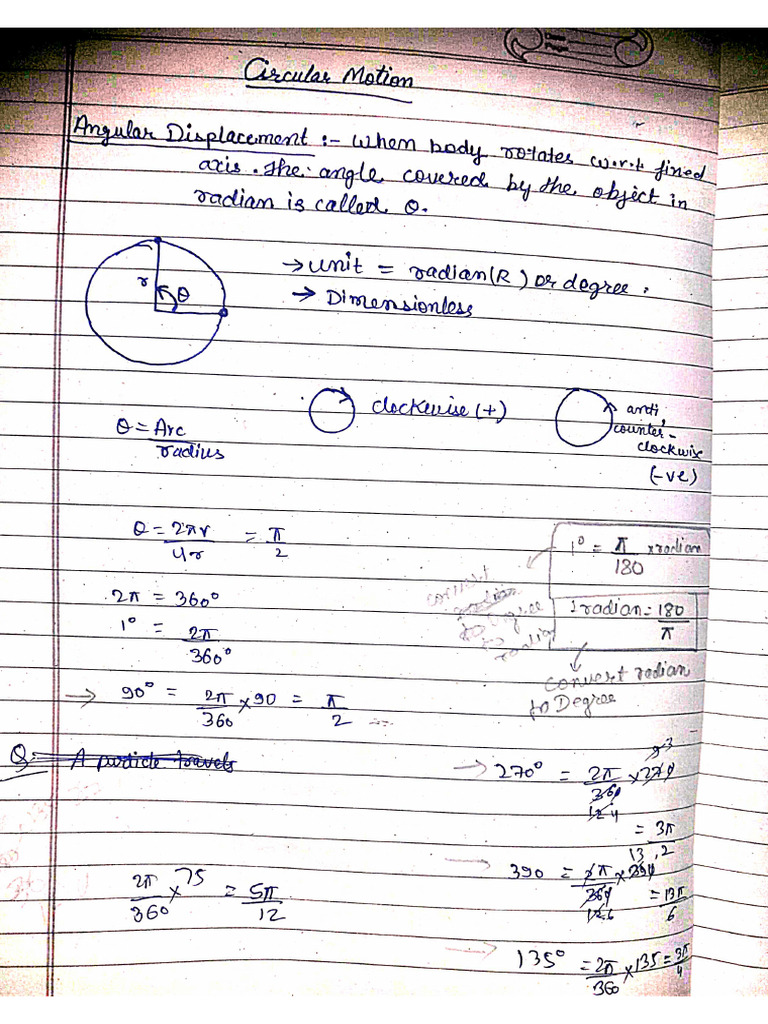 Circular Motion
Angular Displacement :- When body rotates w.r.t fixed
axis. The angle covered by the object in
radian is called θ.
→ unit = radian(R) or degree.
→ Dimensionless
r
θ
clockwise (+)
anti
counter-
clockwise
(-ve)
θ = Arc
radius
θ = 2πr = π
4r 2
1° = π x radian
180
2π = 360°
1 radian = 180
π
1° = 2π
360°
convert radian
to Degree
→ 90° = 2π x 90 = π
360 2
Q:- A particle travels
→ 270° = 2π x 270
360
= 3π
2
→ 390 = 2π x 390
360
= 13π
6
2π x 75 = 5π
360 12
→ 135° = 2π x 135 = 3π
360 4